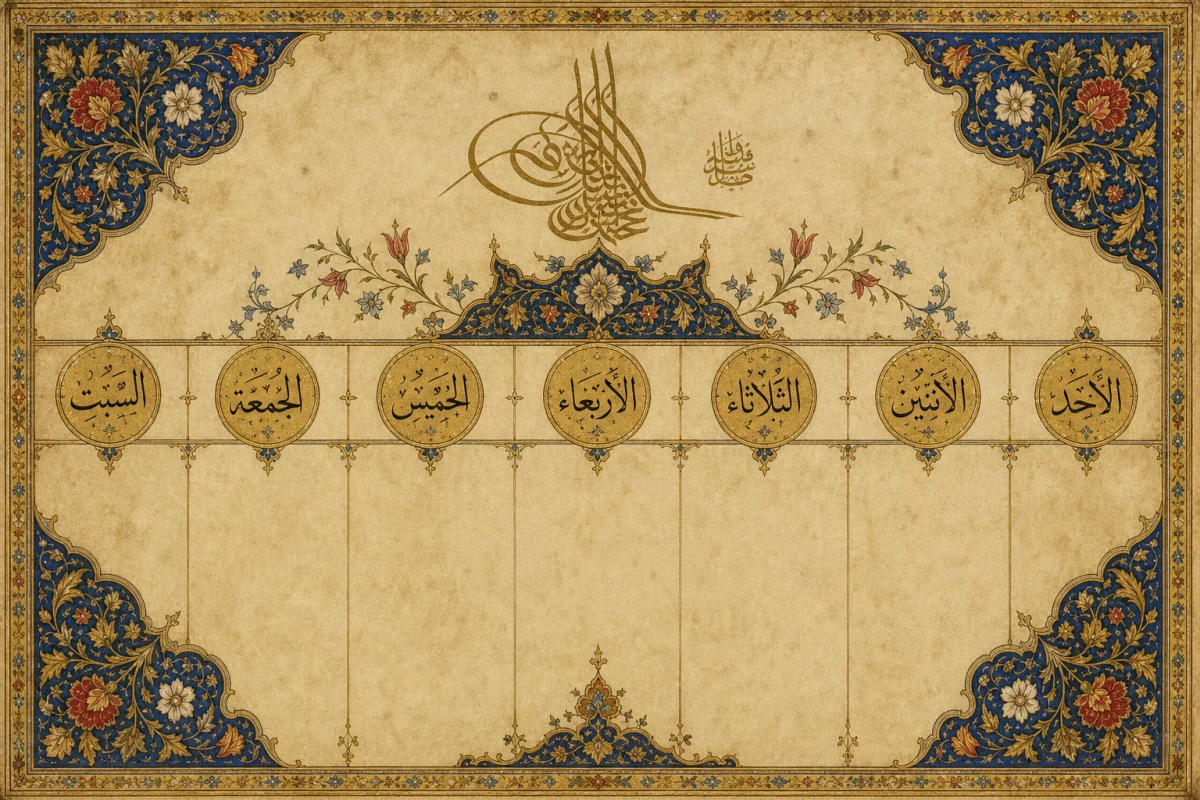 الأَحَد الأَثنَين الثَّلَاثَاء الأَربَعَاء الخَميسُ الجُمعَة السَّبْت